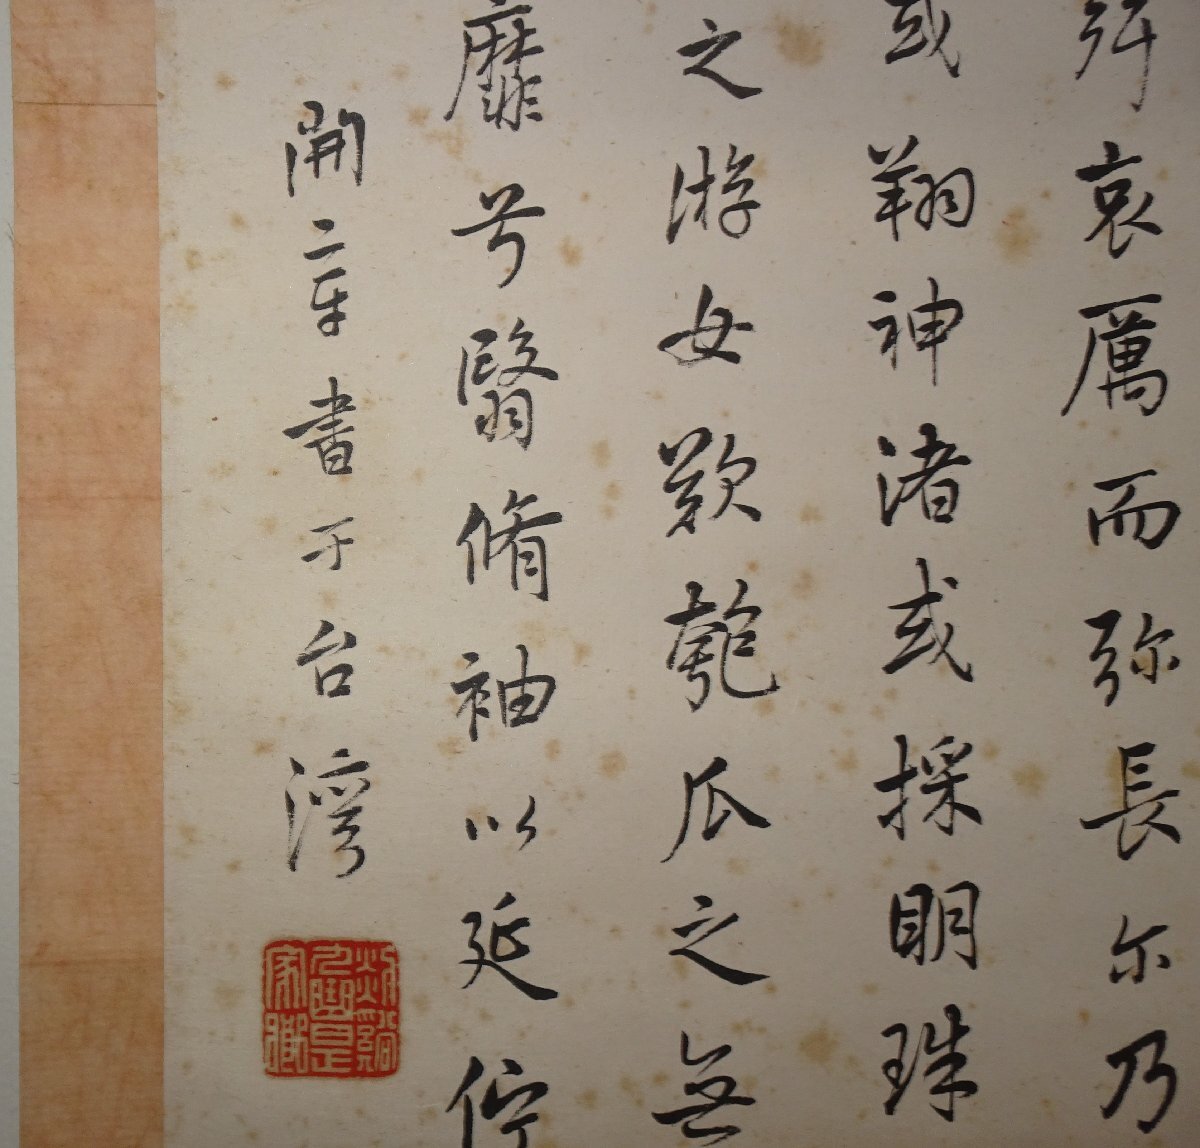 哀厲而弥長尔乃
或翔神渚或採明珠
之游女歎匏瓜之無
靡兮翳脩袖以延佇
開書于台灣
家藏